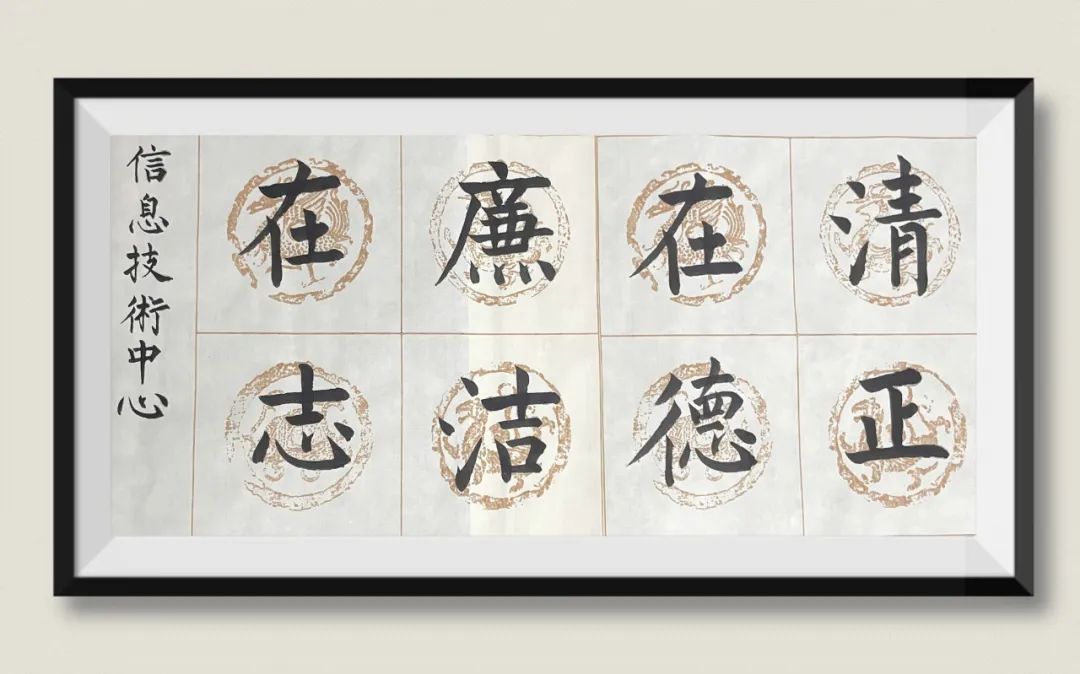 清正
在德
廉洁
在志
信息技術中心